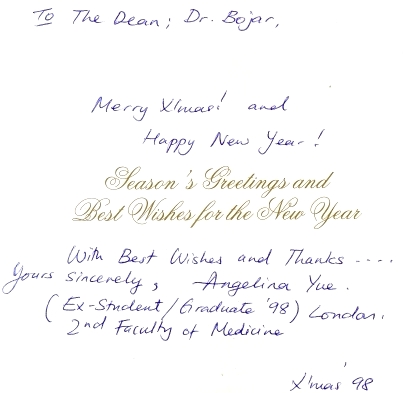 To The Dean; Dr. Bojar,
Merry X'mas! and
Happy New Year!
Season's Greetings and
Best Wishes for the New Year
With Best Wishes and Thanks ....
Yours Sincerely, Angelina Yue.
(Ex-Student/Graduate '98) London.
2nd Faculty of Medicine
X'mas '98